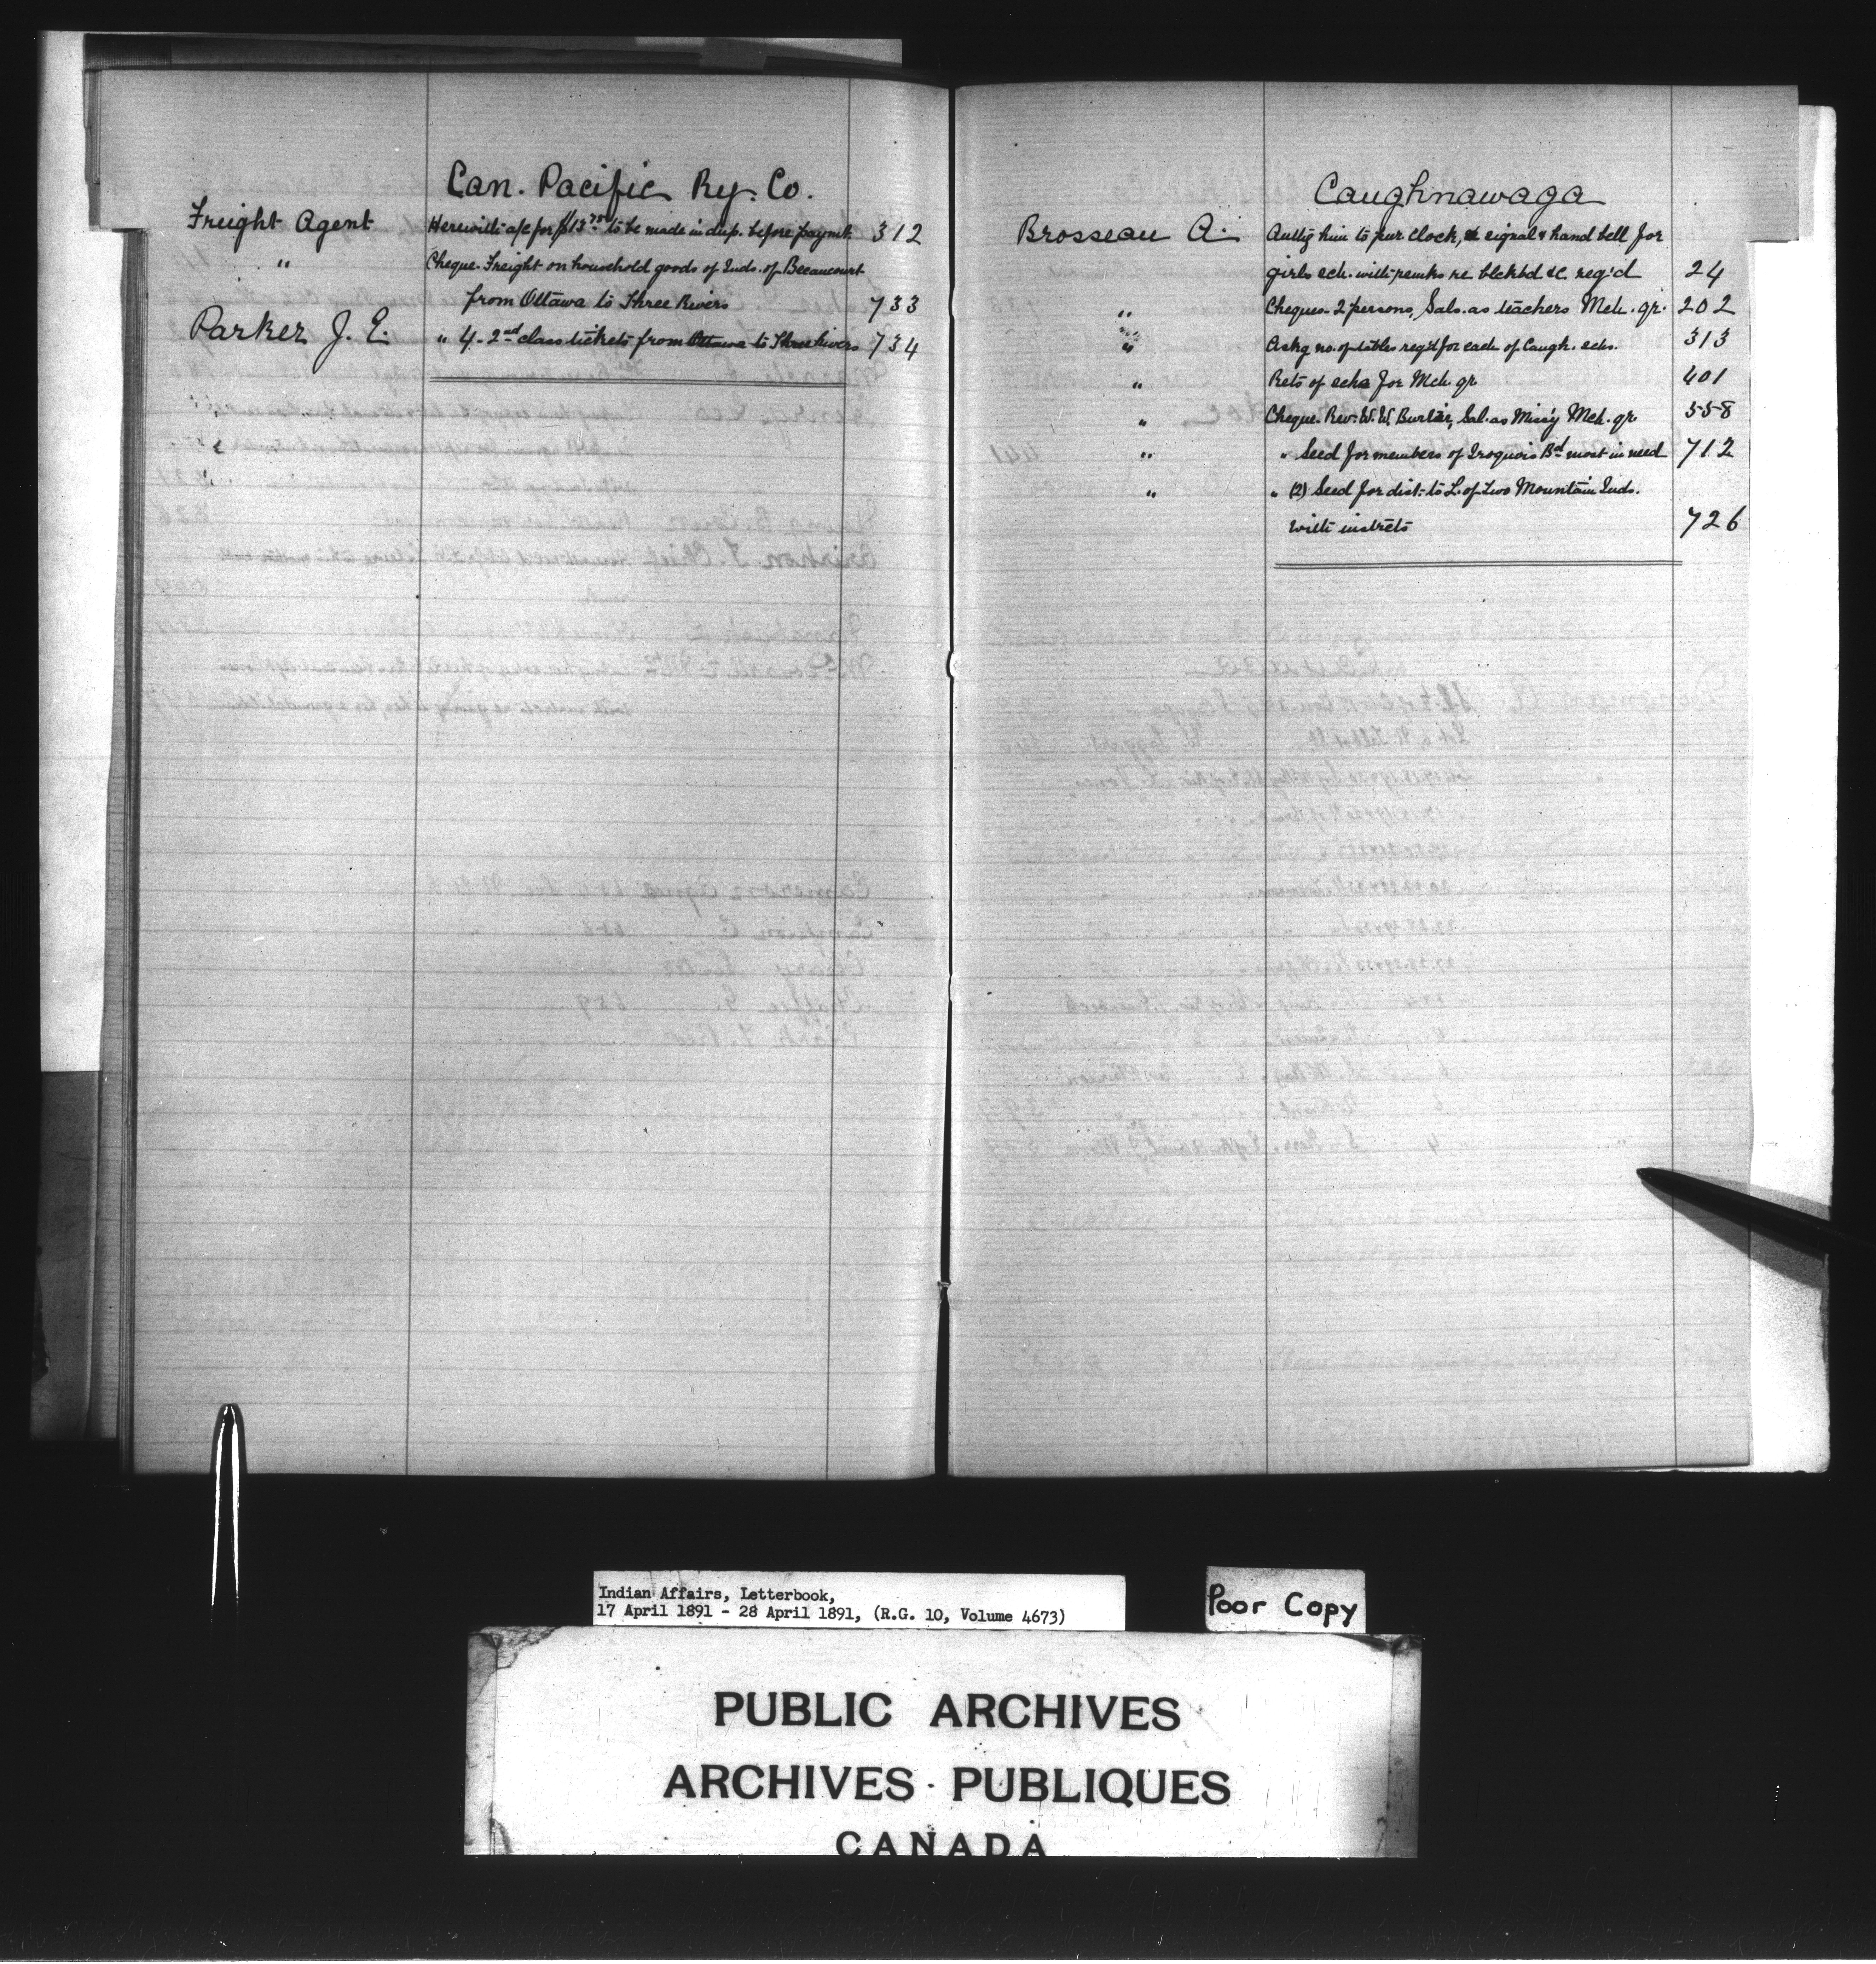 Can. Pacific Ry. Co.
Freight Agent Herewith a/c for $13.75 to be made in dup. before paymt. 312
" Cheque. Freight on household goods of Inds. of Becancourt
from Ottawa to Three Rivers 733
Parker J. E. " 4-2nd class tickets from Ottawa to Three Rivers 734
Caughnawaga
Brosseau A. Authg him to pur clock, signal & hand bell for
girls sch. with remks re blckbd &c. reqd 24
" Cheques-2 persons, Sals. as teachers Mch. qr. 202
" Askg no. of tables reqd for each of Caugh. schs. 313
" Rets of schs for Mch. qr 401
" Cheque. Rev. W. W. Sal. as Missy Mch. qr 558
" " Seed for members of Iroquois Bd most in need 712
" " (2) Seed for dist. to L. of Two Mountain Inds.
with instrcts 726
Indian Affairs, Letterbook,
17 April 1891 - 28 April 1891, (R.G. 10, Volume 4673)
Poor Copy
PUBLIC ARCHIVES
ARCHIVES PUBLIQUES
CANADA